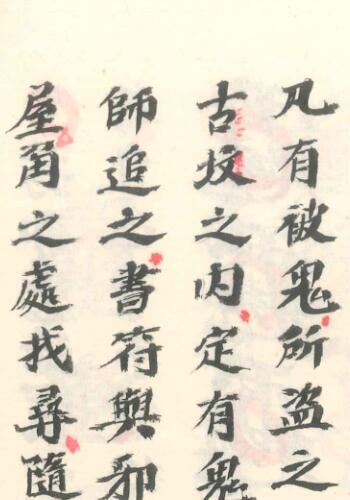 凡有被鬼所盗之
古坟之内定有鬼
師追之書符與邪
屋角之處找尋隨